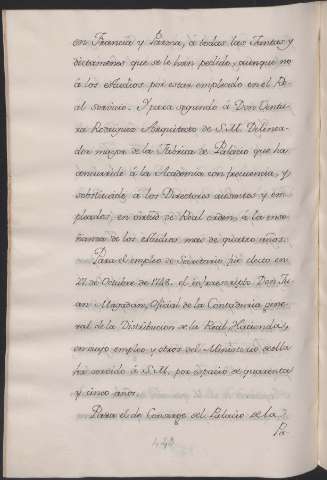 en Francia y Parma, á todas las Juntas y
dictamenes que se le han pedido, aunque no
á los Estudios por estar empleado en el Re-
al servicio. Y para segundo á Don Ventu-
ra Rodriguez Arquitecto de S.M. Delinea-
dor mayor de la Fabrica de Palacio que ha
concurrido á la Academia con frecuencia, y
substituido á los Directores ausentes y em-
pleados, en virtud de Real orden, á la ense-
ñanza de los Estudios mas de quatro años.
Para el empleo de Secretario fue electo en
27 de Octubre de 1748. el infraescripto Don Ju-
an Magadan, Oficial de la Contaduria gene-
ral de la Distribucion de la Real Hacienda,
en cuyo empleo y otros del Ministerio de ella
ha servido á S.M. por espacio de quarenta
y cinco años.
Para el de Conserge del Palacio de la
Pa-